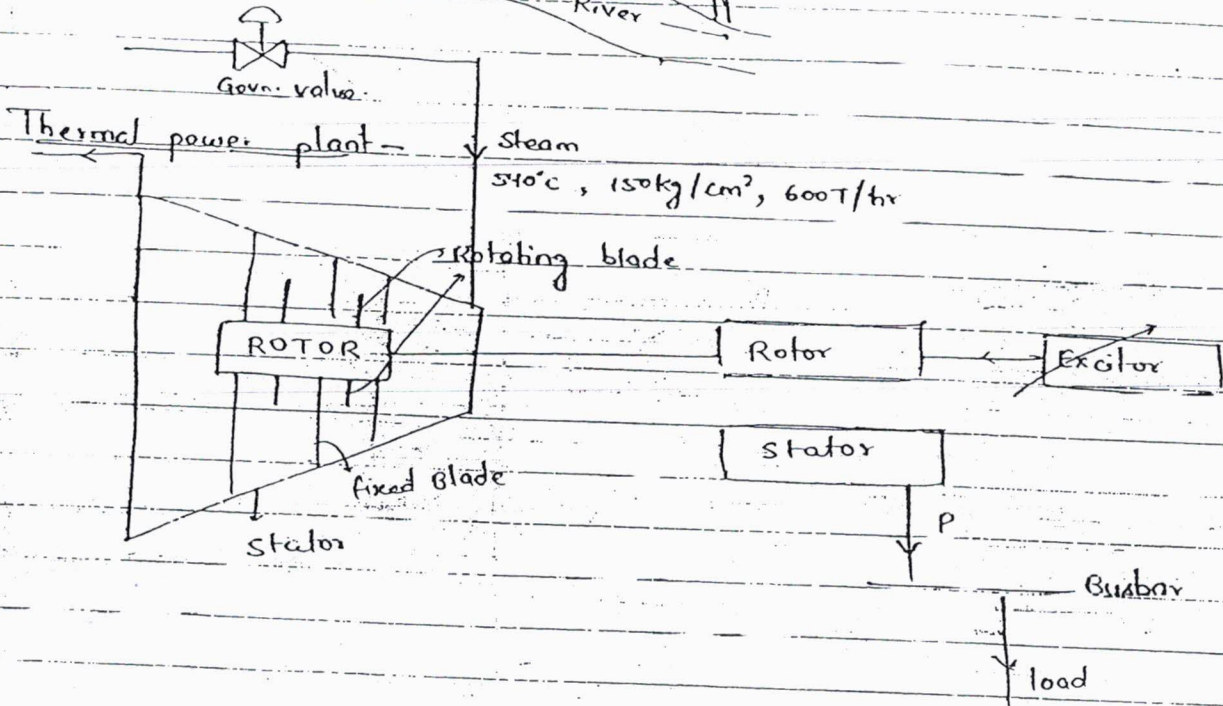 River
Govn. valve.
Thermal power plant -
steam
540°C, 150kg/cm², 600T/hr
Rotating blade
ROTOR
Rotor
Excitor
stator
fixed Blade
P
stator
Busbar
load